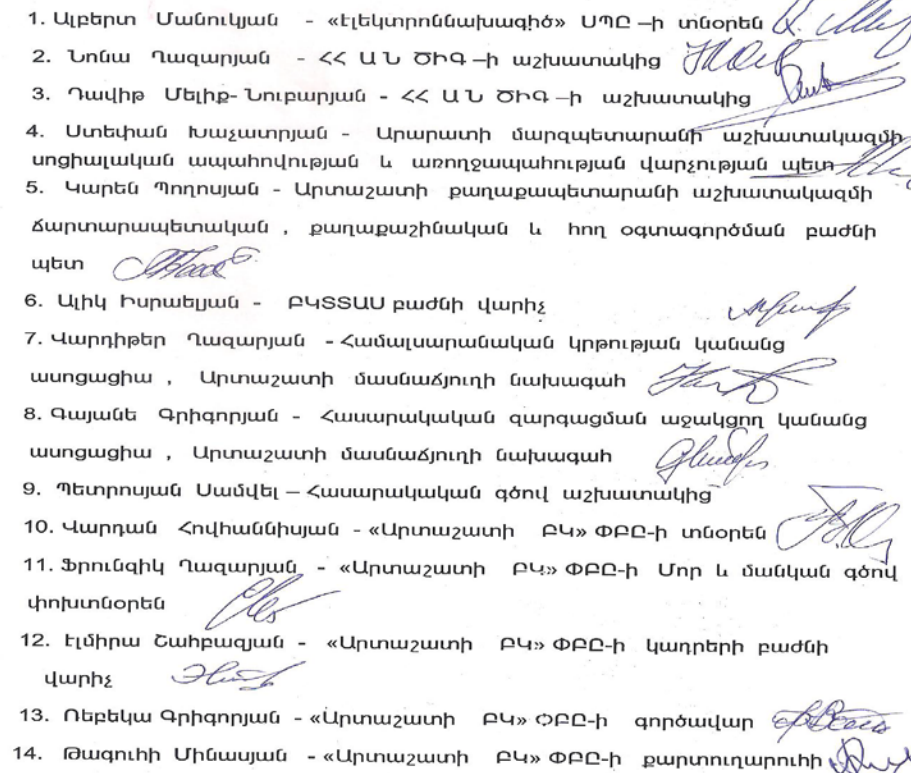 1. Ալբերտ Մանուկյան - «Էլեկտրոննախագիծ» ՍՊԸ –ի տնօրեն
2. Նոնա Ղազարյան - ՀՀ ԱՆ ԾԻԳ –ի աշխատակից
3. Դավիթ Մելիք- Նուբարյան - ՀՀ ԱՆ ԾԻԳ –ի աշխատակից
4. Ստեփան Խաչատրյան - Արարատի մարզպետարանի աշխատակազմի
սոցիալական ապահովության և առողջապահության վարչության պետ
5. Կարեն Պողոսյան - Արտաշատի քաղաքապետարանի աշխատակազմի
ճարտարապետական , քաղաքաշինական և հող օգտագործման բաժնի
պետ
6. Ալիկ Իսրաելյան - ԲԿՏՏԱՍ բաժնի վարիչ
7. Վարդիթեր Ղազարյան - Համալսարանական կրթության կանանց
ասոցացիա , Արտաշատի մասնաճյուղի նախագահ
8. Գայանե Գրիգորյան - Հասարակական զարգացման աջակցող կանանց
ասոցացիա , Արտաշատի մասնաճյուղի նախագահ
9. Պետրոսյան Սամվել – Հասարակական գծով աշխատակից
10. Վարդան Հովհաննիսյան - «Արտաշատի ԲԿ» ՓԲԸ-ի տնօրեն
11. Ֆրունզիկ Ղազարյան - «Արտաշատի ԲԿ» ՓԲԸ-ի Մոր և մանկան գծով
փոխտնօրեն
12. Էլմիրա Շահբազյան - «Արտաշատի ԲԿ» ՓԲԸ-ի կադրերի բաժնի
վարիչ
13. Ռեբեկա Գրիգորյան - «Արտաշատի ԲԿ» ՓԲԸ-ի գործավար
14. Թագուհի Մինասյան - «Արտաշատի ԲԿ» ՓԲԸ-ի քարտուղարուհի